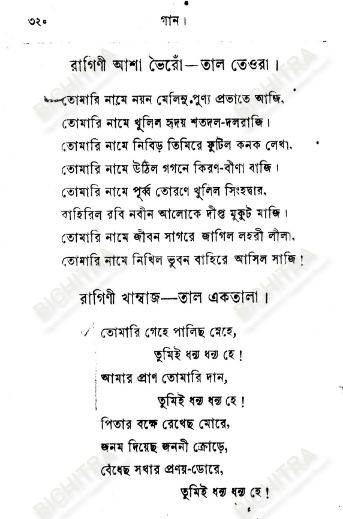 ৩২০ গান।
রাগিণী আশা ভৈরোঁ—তাল তেওরা।
তোমারি নামে নয়ন মেলিনু পুণ্য প্রভাতে আজি,
তোমারি নামে খুলিল হৃদয় শতদল-দলরাজি।
তোমারি নামে নিবিড় তিমিরে ফুটিল কনক লেখা,
তোমারি নামে উঠিল গগনে কিরণ-বীণা বাজি।
তোমারি নামে পূর্ব্ব তোরণে খুলিল সিংহদ্বার,
বাহিরিল রবি নবীন আলোকে দীপ্ত মুকুট মাজি।
তোমারি নামে জীবন সাগরে জাগিল লহরী লীলা,
তোমারি নামে নিখিল ভুবন বাহিরে আসিল সাজি!
রাগিণী খাম্বাজ—তাল একতালা।
তোমারি গেহে পালিছ স্নেহে,
তুমিই ধন্য ধন্য হে!
আমার প্রাণ তোমারি দান,
তুমিই ধন্য ধন্য হে!
পিতার বক্ষে রেখেছ মোরে,
জনম দিয়েছ জননী ক্রোড়ে,
বেঁধেছ সখার প্রণয়-ডোরে,
তুমিই ধন্য ধন্য হে!
BIGHITRA